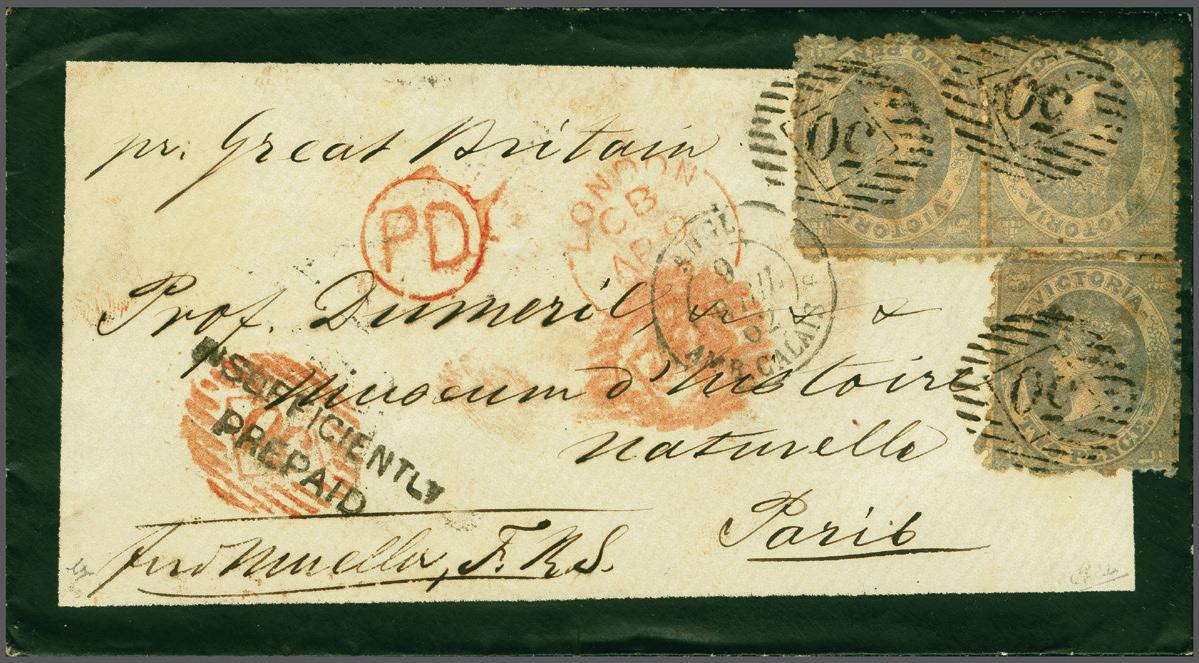 pr. Great Britain
PD
LONDON
CB
AP 9
Prof. Dumeril, & & &
Museum d'Histoire
Naturelle
Paris
INSUFFICIENTLY
PREPAID
Ferd Mueller, F.R.S.
ANGL.
9
62
AMB. CALAIS
TWO PENCE
VICTORIA
VICTORIA
VICTORIA
TWO PENCE
50
50
50